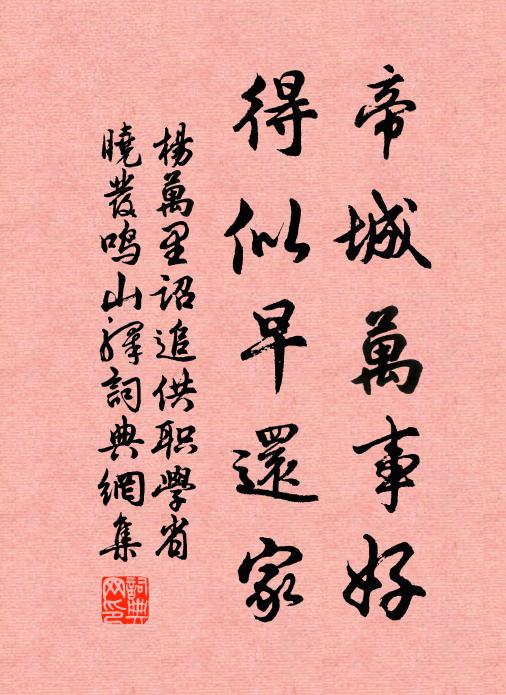 帝城萬事好
得似早還家
楊萬里詔追供职學省
曉發鸣山驛詞典網集
詞典